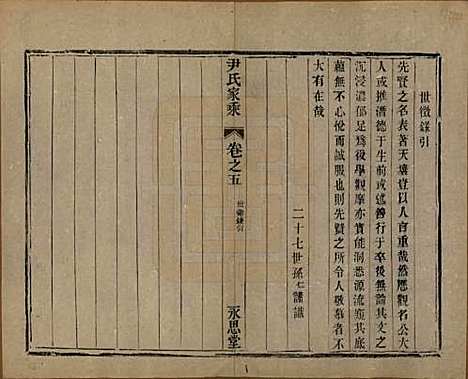 世徵錄引
先賢之名表著天壤豈以人言重哉然歷觀名公大
人或推潛德于生前或述善行于卒後無論其文之
沉浸濃郁足爲後學觀摩亦實能洞悉源流窺其底
蘊無不心悅而誠服也則先賢之所令人敬慕者不
大有在哉
二十七世孫仁謹識
尹氏家乘
卷之五
世徵錄引
永思堂